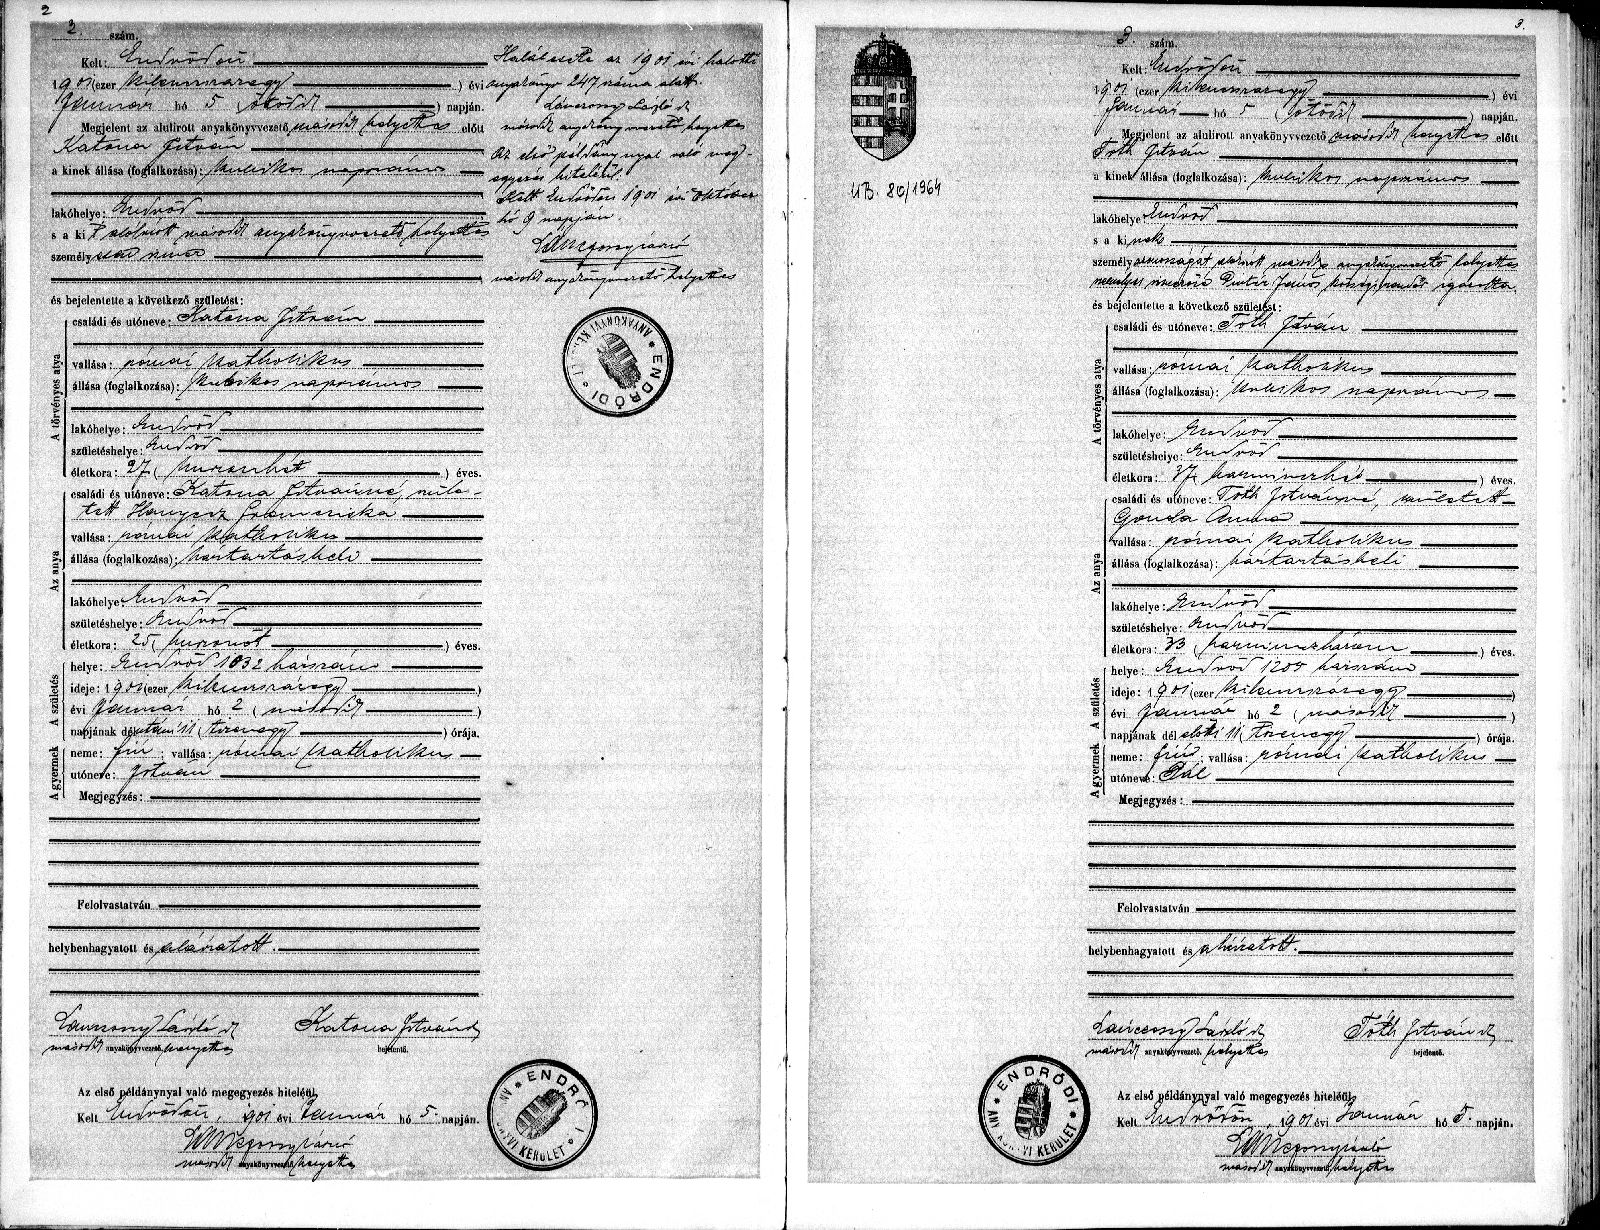 2
2. szám.
Kelt: Endrődön
1901 (ezer kilenczszázegy) évi
Január hó 5 (ötödik) napján.
Megjelent az alulirott anyakönyvvezető második helyettes előtt
Katona István
a kinek állása (foglalkozása): kubikos napszámos
lakóhelye: Endrőd
s a kit alulirott második anyakönyvvezető helyettes
személyesen
és bejelentette a következő születést:
A törvényes atya
családi és utóneve: Katona István
vallása: római katholikus
állása (foglalkozása): kubikos napszámos
lakóhelye: Endrőd
születéshelye: Endrőd
életkora: 27 (huszonhét) éves.
Az anya
családi és utóneve: Katona Istvánné, szüle-
tett Hanyecz Francziska
vallása: római katholikus
állása (foglalkozása): háztartásbeli
lakóhelye: Endrőd
születéshelye: Endrőd
életkora: 25 (huszonöt) éves.
A születés
helye: Endrőd 1032 házszám
ideje: 1901 (ezer kilenczszázegy)
évi Január hó 2 (második)
napjának délutáni 11 (tizenegy) órája.
A gyermek
neme: fiú; vallása: római katholikus
utóneve: István
Megjegyzés:
Felolvastatván
helybenhagyatott és aláiratott.
Lánczony László
Katona István
második anyakönyvvezető. helyettes
bejelentő.
Az első példánynyal való megegyezés hiteléül,
Kelt Endrődön, 1901 évi Január hó 5. napján.
második anyakönyvvezető helyettes
Halálesete az 1901 évi halotti
anyakönyv 247 száma alatt.
második anyakönyvvezető helyettes
Az első példánynyal való meg-
egyezés hiteléül.
Kelt Endrődön 1901 évi Október
hó 9 napján.
második anyakönyvvezető helyettes
ENDRŐDI
ANYAKÖNYVI KE
ENDRŐ I
VI KERÜLET
3.
3. szám.
Kelt: Endrődön
1901 (ezer kilenczszázegy) évi
Január hó 5 (ötödik) napján.
Megjelent az alulirott anyakönyvvezető második helyettes előtt
Tóth István
a kinek állása (foglalkozása): kubikos napszámos
lakóhelye: Endrőd
s a kinek
személyazonosságát alulirott második anyakönyvvezető helyettes
János községi rendőr igazolta
és bejelentette a következő születést:
A törvényes atya
családi és utóneve: Tóth István
vallása: római katholikus
állása (foglalkozása): kubikos napszámos
lakóhelye: Endrőd
születéshelye: Endrőd
életkora: 37 (harminczhét) éves.
Az anya
családi és utóneve: Tóth Istvánné, született
Gonda Anna
vallása: római katholikus
állása (foglalkozása): háztartásbeli
lakóhelye: Endrőd
születéshelye: Endrőd
életkora: 33 (harminczhárom) éves.
A születés
helye: Endrőd 1200 házszám
ideje: 1901 (ezer kilenczszázegy)
évi Január hó 2 (második)
napjának dél előtti 11 (tizenegy) órája.
A gyermek
neme: fiú; vallása: római katholikus
utóneve: Pál
Megjegyzés:
Felolvastatván
helybenhagyatott és aláiratott.
Lánczony László
Tóth István
második anyakönyvvezető. helyettes
bejelentő.
Az első példánynyal való megegyezés hiteléül,
Kelt Endrődön, 1901 évi Január hó 5 napján.
második anyakönyvvezető helyettes
UB. 80/1964
ENDRŐDI
VI KERÜLET